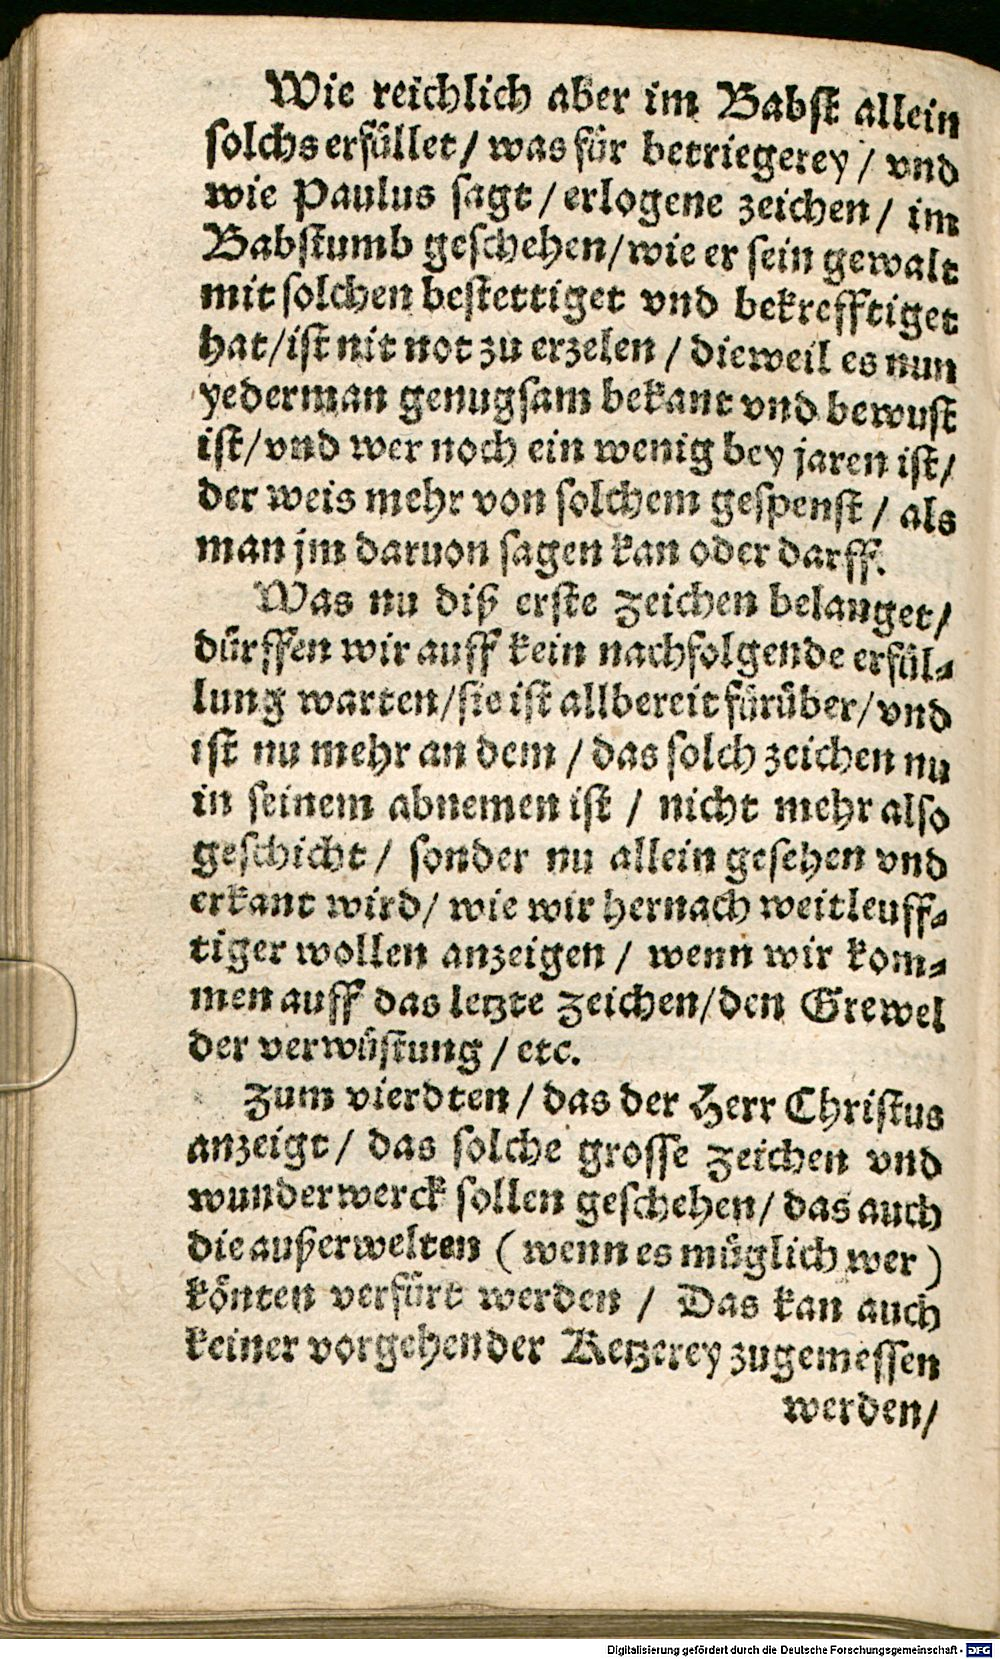 Wie reichlich aber im Babst allein
solchs erfüllet / was für betriegerey / vnd
wie Paulus sagt / erlogene zeichen / im
Babstumb geschehen / wie er sein gewalt
mit solchen bestettiget vnd bekrefftiget
hat / ist nit not zu erzelen / dieweil es nun
yederman genugsam bekant vnd bewust
ist / vnd wer noch ein wenig bey jaren ist /
der weis mehr von solchem gespenst / als
man jm daruon sagen kan oder darff.
Was nu diß erste Zeichen belanget /
dürffen wir auff kein nachfolgende erfül-
lung warten / sie ist allbereit fürüber / vnd
ist nu mehr an dem / das solch zeichen nu
in seinem abnemen ist / nicht mehr also
geschicht / sonder nu allein gesehen vnd
erkant wird / wie wir hernach weitleuff-
tiger wollen anzeigen / wenn wir kom-
men auff das letzte Zeichen / den Grewel
der verwüstung / etc.
Zum vierdten / das der Herr Christus
anzeigt / das solche grosse Zeichen vnd
wunderwerck sollen geschehen / das auch
die außerwelten ( wenn es müglich wer )
könten verfürt werden / Das kan auch
keiner vorgehender Ketzerey zugemessen
werden /
Digitalisierung gefördert durch die Deutsche Forschungsgemeinschaft - DFG